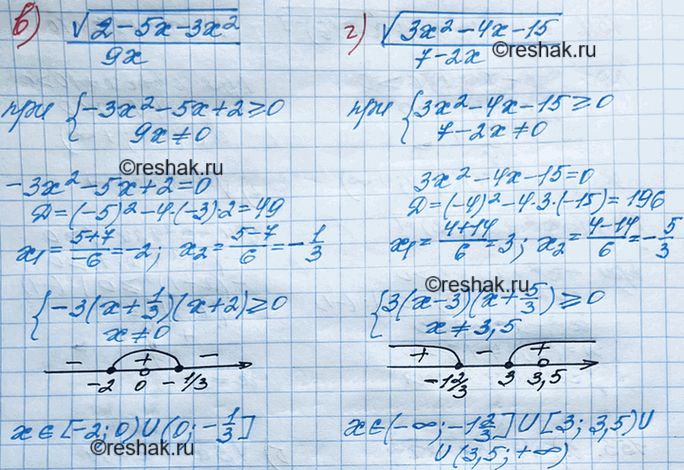 в) √(2-5x-3x²) / 9x
при { -3x²-5x+2≥0
9x≠0
©reshak.ru
-3x²-5x+2=0
Д=(-5)²-4·(-3)·2=49
x₁=(5+7)/(-6)=-2; x₂=(5-7)/6=-1/3
{ -3(x+1/3)(x+2)≥0
x≠0
- + -
-2 0 -1/3
x∈[-2;0)∪(0;-1/3]
©reshak.ru
©reshak.ru
г) √(3x²-4x-15) / 7-2x
при { 3x²-4x-15≥0
7-2x≠0
3x²-4x-15=0
Д=(-4)²-4·3·(-15)=196
x₁=(4+14)/6=3; x₂=(4-14)/6=-5/3
©reshak.ru
{ 3(x-3)(x+5/3)≥0
x≠3,5
+ - +
-1 2/3 3 3,5
x∈(-∞;-1 2/3]∪[3;3,5)∪
∪(3,5;+∞)
©reshak.ru